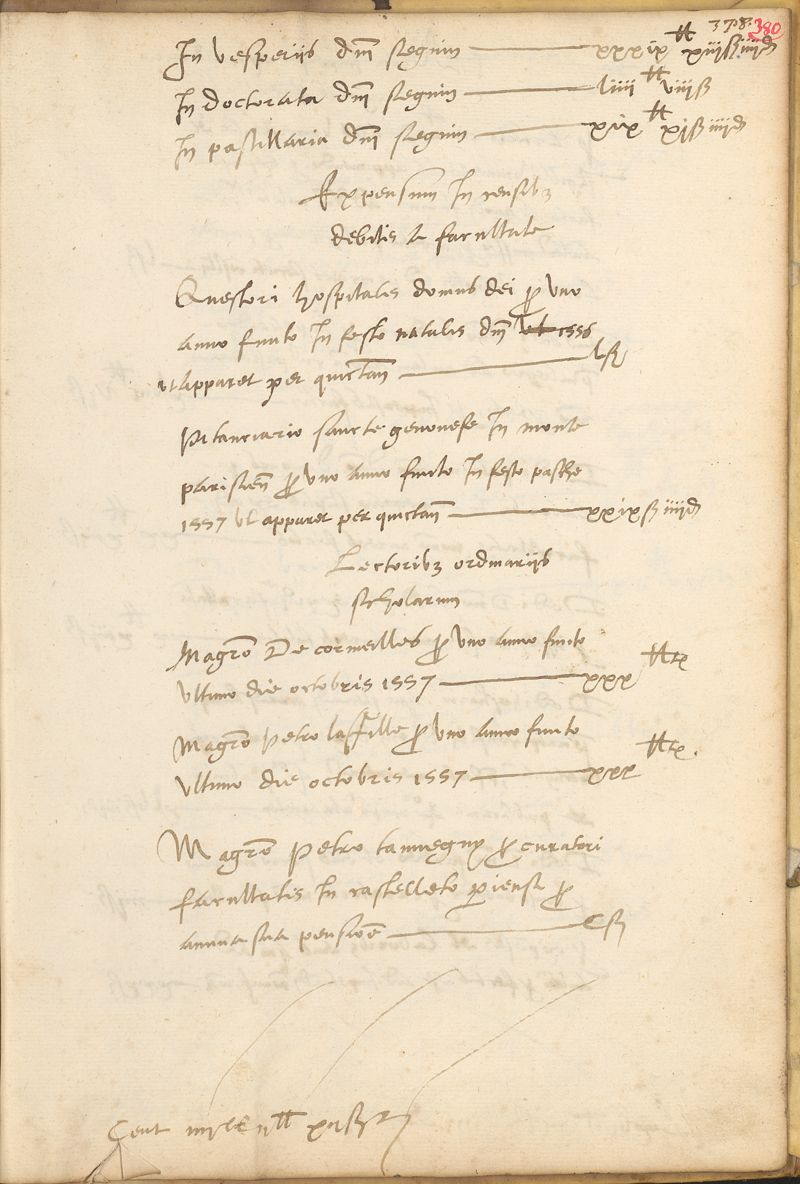 378. 380
In vesperiis dni seguin xxxix tt xiiiß iiiid
In doctorata dni seguin liiii tt viiiß
In pastillaria dni seguin xix tt xjß iiiid
Expensum In censibz
debitis a facultate
Questori hospitalis domus dei pro uno
anno finito In festo natalis dni 1556
ut apparet per quictan lß
Pitanciario sancte genovefe In monte
parisien pro uno anno finito In festo pasche
1557 ut apparet per quictan xxixß iiiid
Lectoribz ordinariis
scholarum
Magro De cormeilles pro uno anno finito
ultimo die octobris 1557 xxx tt
Magro Petro laffille pro uno anno finito
ultimo die octobris 1557 xxx tt
Magro Petro tanneguy procuratori
facultatis In castelleto pariensi pro
annua sua pensione Cß
Cent xiiß